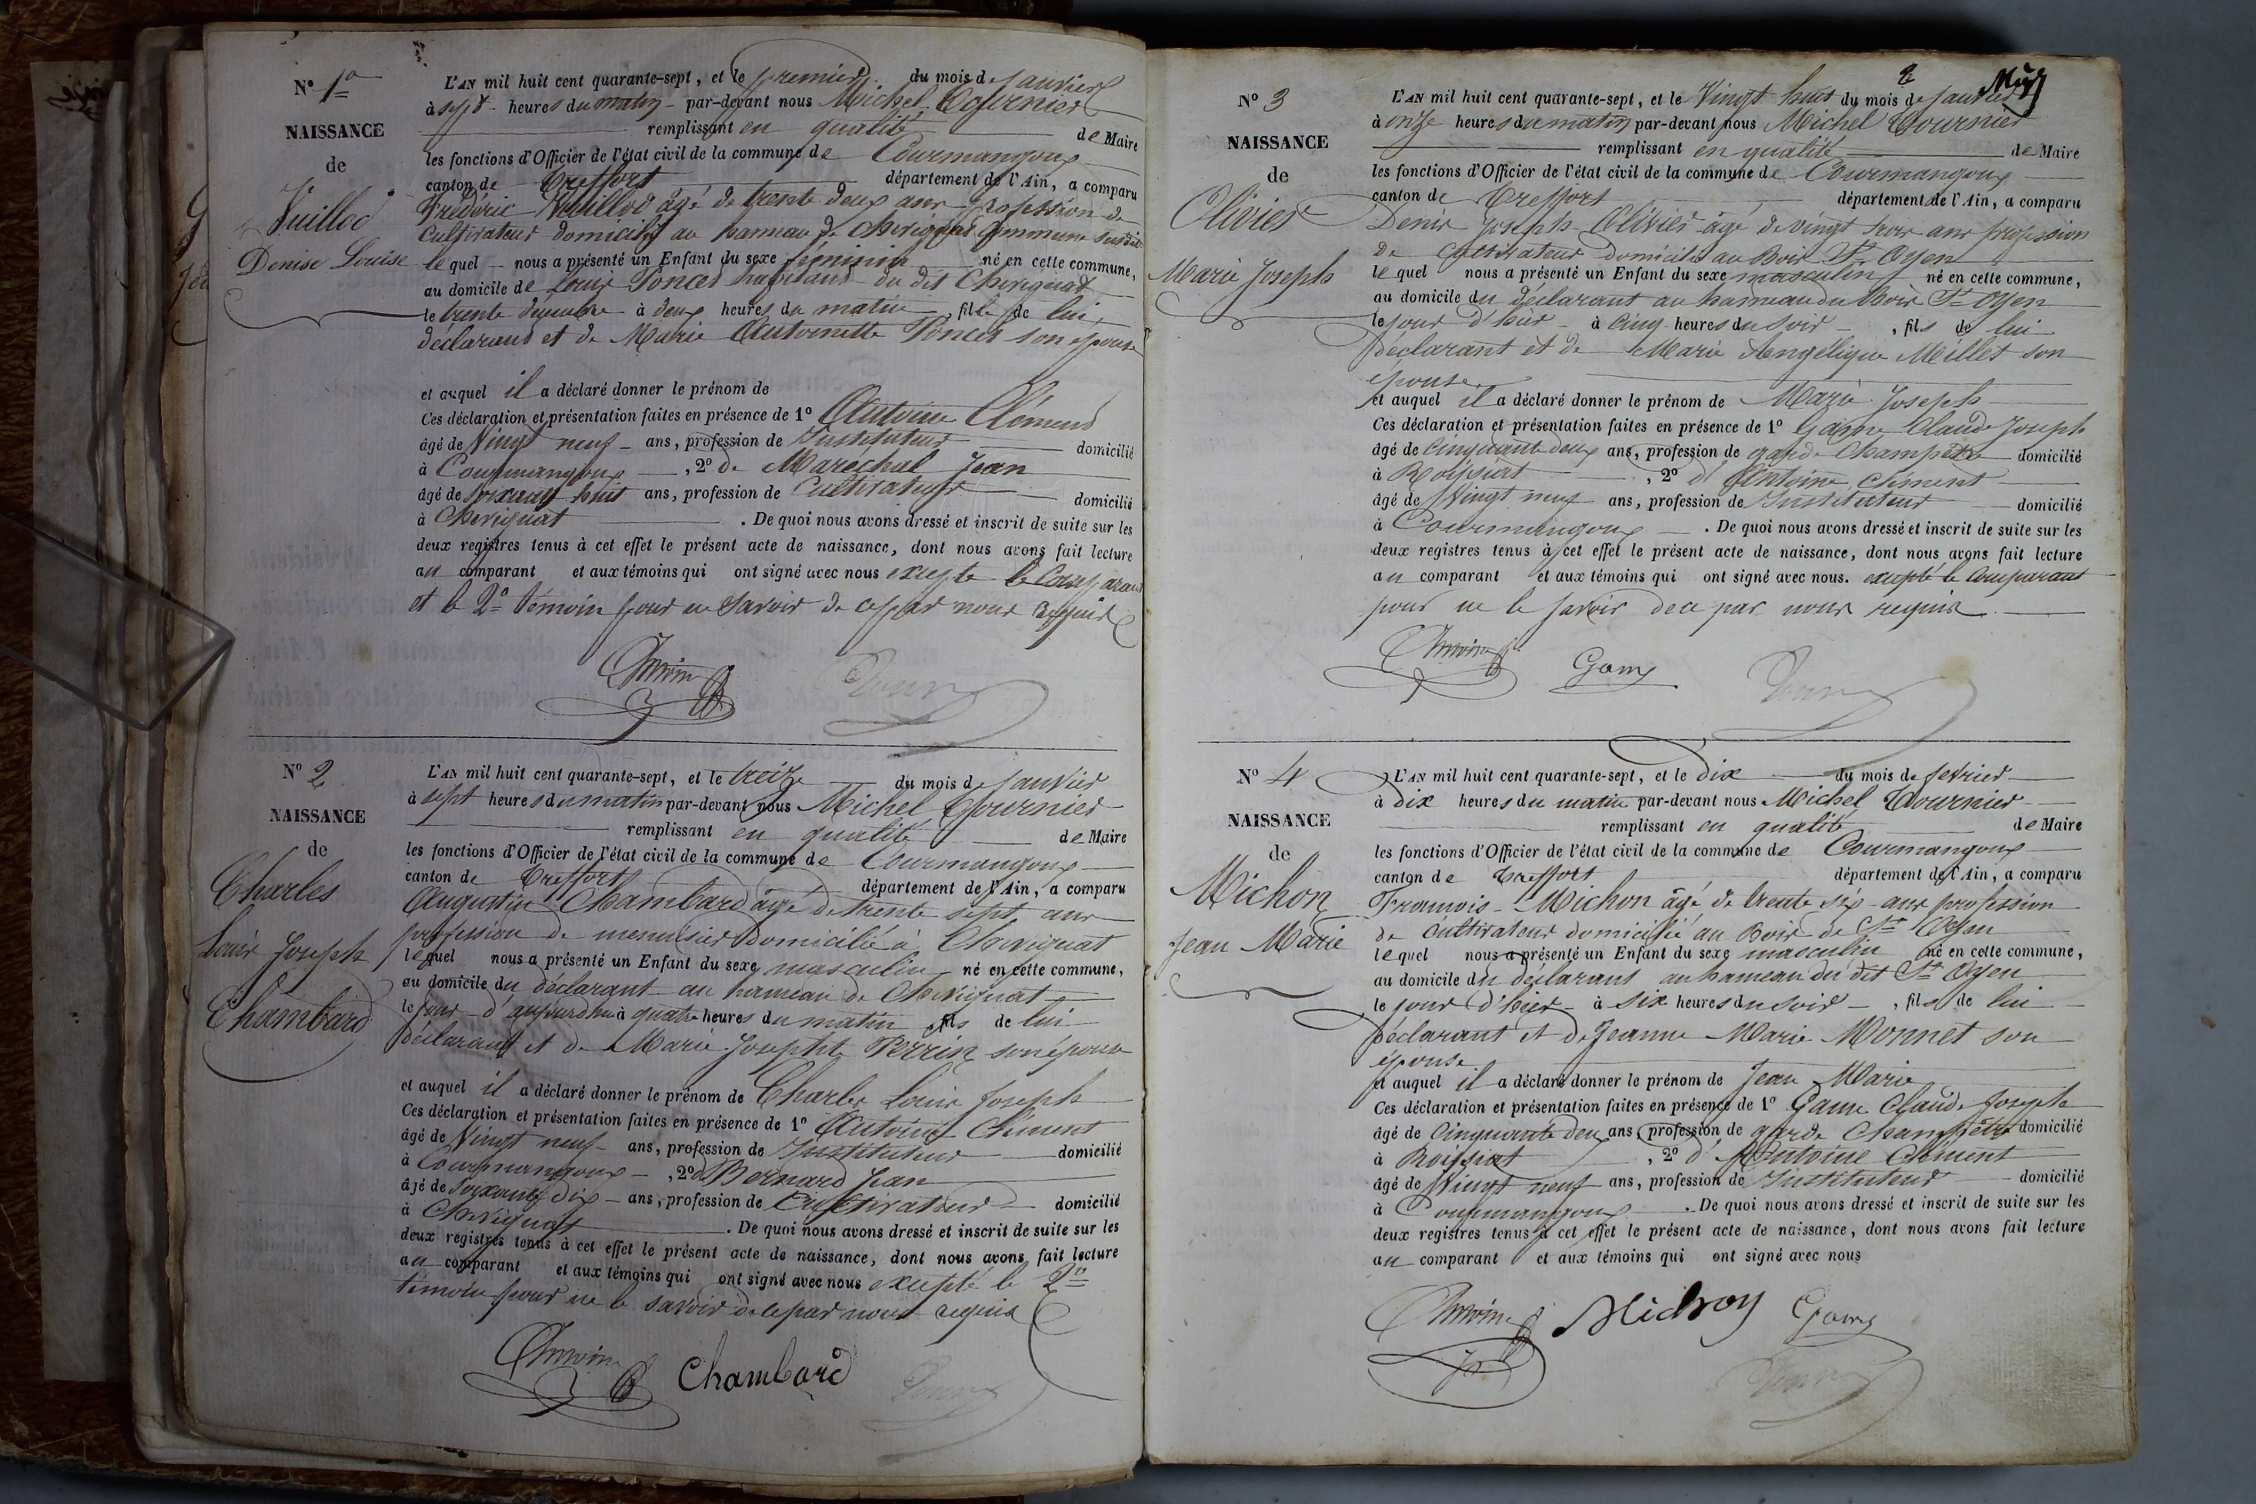 N° 1er
NAISSANCE
de
Vuillod
Denise Louise
L'AN mil huit cent quarante-sept, et le premier du mois de janvier
à sept heures du matin par-devant nous Michel Tournier
remplissant en qualité de Maire
les fonctions d'Officier de l'état civil de la commune de Courmangoux
canton de Treffort département de l'Ain, a comparu
Frédéric Vuillod âgé de trente deux ans profession de
cultivateur domicilié au hameau de Chevignat commune susdite
lequel nous a présenté un Enfant du sexe féminin né en cette commune,
au domicile de Louis Poncet habitant du dit Chevignat
le trente décembre à deux heures du matin, fille de lui
déclarant et de Marie Antoinette Poncet son épouse
et auquel il a déclaré donner le prénom de
Ces déclaration et présentation faites en présence de 1° Antoine Clément
âgé de Vingt neuf ans, profession de Instituteur domicilié
à Courmangoux, 2° de Maréchal Jean
âgé de soixante huit ans, profession de Cultivateur domicilié
à Chevignat. De quoi nous avons dressé et inscrit de suite sur les
deux registres tenus à cet effet le présent acte de naissance, dont nous avons fait lecture
au comparant et aux témoins qui ont signé avec nous excepté le Comparant
et le 2e témoin pour ne savoir de ce par nous requis
Antoine
N° 2
NAISSANCE
de
Charles
Louis Joseph
Chambard
L'AN mil huit cent quarante-sept, et le treize du mois de janvier
à sept heures du matin par-devant nous Michel Tournier
remplissant en qualité de Maire
les fonctions d'Officier de l'état civil de la commune de Courmangoux
canton de Treffort département de l'Ain, a comparu
Augustin Chambard âgé de trente sept ans
profession de menuisier domicilié à Chevignat
lequel nous a présenté un Enfant du sexe masculin né en cette commune,
au domicile du déclarant au hameau de Chevignat
le jour d'aujourdhui à quatre heures du matin, fils de lui
déclarant et de Marie Josephte Perrin son épouse
et auquel il a déclaré donner le prénom de Charles Louis Joseph
Ces déclaration et présentation faites en présence de 1° Antoine Clément
âgé de Vingt neuf ans, profession de Instituteur domicilié
à Courmangoux, 2° de Bernard Jean
âgé de Soixante dix ans, profession de Cultivateur domicilié
à Chevignat. De quoi nous avons dressé et inscrit de suite sur les
deux registres tenus à cet effet le présent acte de naissance, dont nous avons fait lecture
au comparant et aux témoins qui ont signé avec nous excepté le 2e
témoin pour ne le savoir de ce par nous requis
Antoine Chambard
2
N° 3
NAISSANCE
de
Olivier
Marie Joseph
L'AN mil huit cent quarante-sept, et le Vingt huit du mois de janvier
à onze heures du matin par-devant nous Michel Tournier
remplissant en qualité de Maire
les fonctions d'Officier de l'état civil de la commune de Courmangoux
canton de Treffort département de l'Ain, a comparu
Denis Joseph Olivier âgé de vingt trois ans profession
de cultivateur domicilié au Bois St Oyen
lequel nous a présenté un Enfant du sexe masculin né en cette commune,
au domicile du déclarant au hameau du bois St Oyen
le jour d'hier à Cinq heures du soir, fils de lui
déclarant et de Marie Angélique Millet son
épouse
et auquel il a déclaré donner le prénom de Marie Joseph
Ces déclaration et présentation faites en présence de 1° Game Claude Joseph
âgé de Cinquante deux ans, profession de garde Champêtre domicilié
à Roissiat, 2° d'Antoine Clément
âgé de Vingt neuf ans, profession de Instituteur domicilié
à Courmangoux. De quoi nous avons dressé et inscrit de suite sur les
deux registres tenus à cet effet le présent acte de naissance, dont nous avons fait lecture
au comparant et aux témoins qui ont signé avec nous. excepté le Comparant
pour ne le savoir de ce par nous requis
Antoine Game
N° 4
NAISSANCE
de
Michon
Jean Marie
L'AN mil huit cent quarante-sept, et le dix du mois de fevrier
à dix heures du matin par-devant nous Michel Tournier
remplissant en qualité de Maire
les fonctions d'Officier de l'état civil de la commune de Courmangoux
canton de Treffort département de l'Ain, a comparu
François Michon âgé de trente six ans profession
de cultivateur domicilié au Bois de St Oyen
lequel nous a présenté un Enfant du sexe masculin né en cette commune,
au domicile du déclarant au hameau du dit St Oyen
le jour d'hier à six heures du soir, fils de lui
déclarant et de Jeanne Marie Monnet son
épouse
et auquel il a déclaré donner le prénom de Jean Marie
Ces déclaration et présentation faites en présence de 1° Game Claude Joseph
âgé de Cinquante deux ans, profession de garde Champêtre domicilié
à Roissiat, 2° d'Antoine Clément
âgé de Vingt neuf ans, profession de Instituteur domicilié
à Courmangoux. De quoi nous avons dressé et inscrit de suite sur les
deux registres tenus à cet effet le présent acte de naissance, dont nous avons fait lecture
au comparant et aux témoins qui ont signé avec nous
Antoine Game